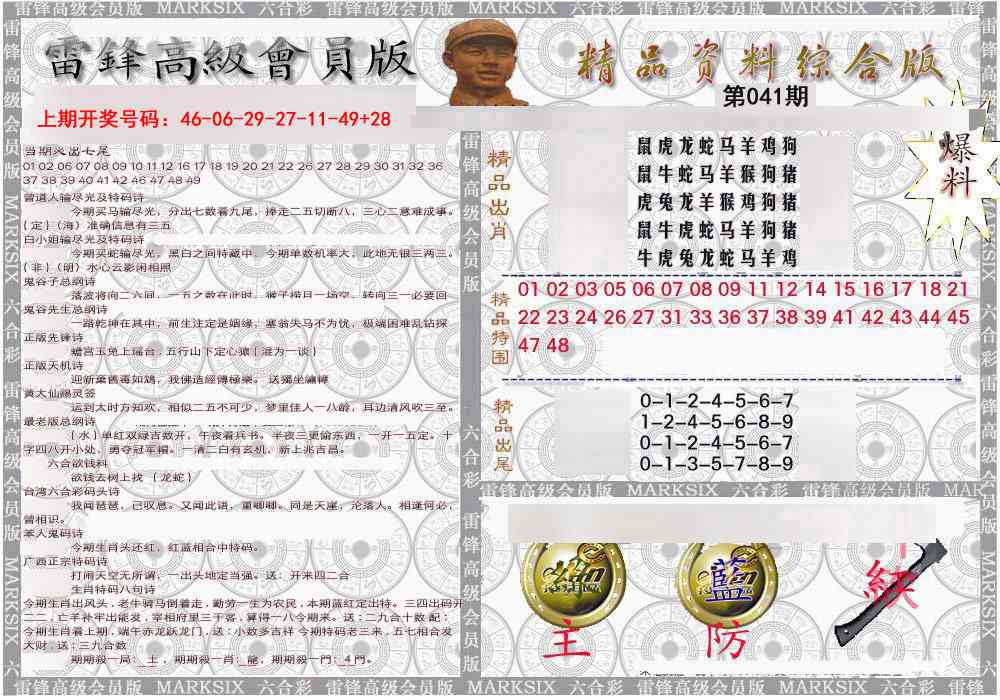 雷锋高级会员版 MARKSIX 六合彩 雷锋高级会员版 MARKSIX 六合彩 雷锋高级会员版 MARKSIX 六合彩 雷锋
雷鋒高級會員版
精品资料综合版
第041期
上期开奖号码：46-06-29-27-11-49+28
爆料
当期必出七尾
01 02 06 07 08 09 10 11 12 16 17 18 19 20 21 22 26 27 28 29 30 31 32 36
37 38 39 40 41 42 46 47 48 49
曾道人输尽光及特码诗
今期买马输尽光，分出七数看九尾，捧走二五切断八，三心二意难成事。
{定}（海）准确信息有三五
白小姐输尽光及特码诗
今期买蛇输尽光，黑白之间特藏中，今期单数机率大，此地无银三两三。
{非}（明）水心云影闲相照
鬼谷子总纲诗
落波将向二六间，一五之数在此时，猴子捞月一场空，转向三一必要回
鬼谷先生总纲诗
一路乾坤在其中，前生注定是姻缘，塞翁失马不为忧，极端困难乱钻探
正版先锋诗
蟾宫玉兔上瑶台，五行山下定心猿{混为一谈}
正版天机诗
迎新棄舊毒如鴆，我佛造經傳極樂。 送獨坐蹣樽
黄大仙赐灵签
运到太时方知欢，相似二五不可少，梦里佳人一八龄，耳边清风吹三至。
最老版总纲诗
{水}单红双绿吉数开，午夜着兵书。半夜三更偷东西，一开一五定。十
字四八开小处，勇夺冠军帽。一清二白有玄机，新上兆吉昌。
六合欲钱料
欲钱去树上找 {龙蛇}
台湾六合彩码头诗
我闻琵琶，已叹息。又闻此语，重唧唧。同是天崖，沦落人。相逢何必，
曾相识。
本人鬼码诗
今期生肖头还红，红蓝相合中特码。
广西正宗特码诗
打闹天空无所谓，一出头地定当强。送：开来四二合
生肖特码八句诗
今期生肖出风头，老牛骑马倒着走，勤劳一生为农民，本期蓝红定出特。三四出码开
二二，亡羊补牢出能发，宰相府里三千客，算得一八今期来。送：二九合十数 配：
今期生肖看上期，端午赤龙跃龙门，送：小数多吉祥 今期特码老三来，五七相合发
大财，送：三九合数
期期殺一局：土，期期殺一肖：龍，期期殺一門：4門。
精品出肖
鼠虎龙蛇马羊鸡狗
鼠牛蛇马羊猴狗猪
虎兔龙羊猴鸡狗猪
鼠牛虎蛇马羊狗猪
牛虎兔龙蛇马羊鸡
精品特围
01 02 03 05 06 07 08 09 11 12 14 15 16 17 18 21
22 23 24 26 27 31 33 36 37 38 39 41 42 43 44 45
47 48
精品出尾
0-1-2-4-5-6-7
1-2-4-5-6-8-9
0-1-2-4-5-6-7
0-1-3-5-7-8-9
雷锋高级会员版 MARKSIX 六合彩 雷锋高级会员版 MARK
绿
藍
紅
主
防
雷锋高级会员版 MARKSIX 六合彩 雷锋高级会员版 MARKSIX 六合彩 雷锋高级会员版 MARKSIX 六合彩 雷锋